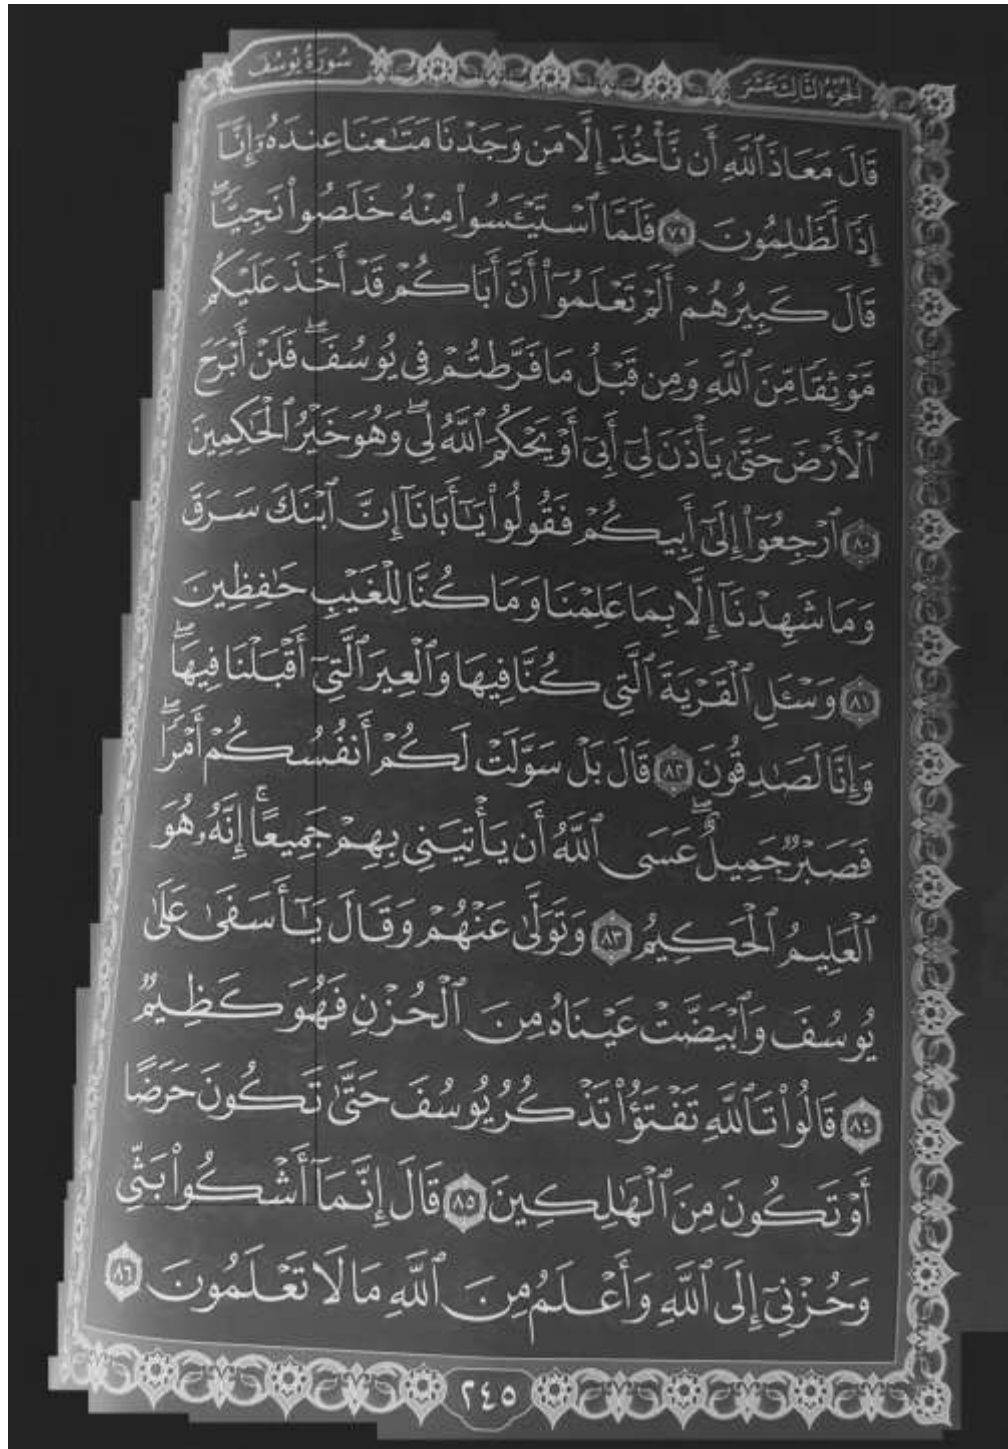 سُورَةُ يُوسُفَ
الجُزْءُ الثَّالِثَ عَشَرَ
قَالَ مَعَاذَ ٱللَّهِ أَن نَّأْخُذَ إِلَّا مَن وَجَدْنَا مَتَـٰعَنَا عِندَهُۥٓ إِنَّآ
إِذًا لَّظَـٰلِمُونَ ٧٩ فَلَمَّا ٱسْتَيْـَٔسُوا۟ مِنْهُ خَلَصُوا۟ نَجِيًّاۖ
قَالَ كَبِيرُهُمْ أَلَمْ تَعْلَمُوٓا۟ أَنَّ أَبَاكُمْ قَدْ أَخَذَ عَلَيْكُم
مَّوْثِقًا مِّنَ ٱللَّهِ وَمِن قَبْلُ مَا فَرَّطتُمْ فِى يُوسُفَۖ فَلَنْ أَبْرَحَ
ٱلْأَرْضَ حَتَّىٰ يَأْذَنَ لِىٓ أَبِىٓ أَوْ يَحْكُمَ ٱللَّهُ لِىۖ وَهُوَ خَيْرُ ٱلْحَـٰكِمِينَ
٨٠ ٱرْجِعُوٓا۟ إِلَىٰٓ أَبِيكُمْ فَقُولُوا۟ يَـٰٓأَبَانَآ إِنَّ ٱبْنَكَ سَرَقَ
وَمَا شَهِدْنَآ إِلَّا بِمَا عَلِمْنَا وَمَا كُنَّا لِلْغَيْبِ حَـٰفِظِينَ
٨١ وَسْـَٔلِ ٱلْقَرْيَةَ ٱلَّتِى كُنَّا فِيهَا وَٱلْعِيرَ ٱلَّتِىٓ أَقْبَلْنَا فِيهَاۖ
وَإِنَّا لَصَـٰدِقُونَ ٨٢ قَالَ بَلْ سَوَّلَتْ لَكُمْ أَنفُسُكُمْ أَمْرًاۖ
فَصَبْرٌ جَمِيلٌۖ عَسَى ٱللَّهُ أَن يَأْتِيَنِى بِهِمْ جَمِيعًاۚ إِنَّهُۥ هُوَ
ٱلْعَلِيمُ ٱلْحَكِيمُ ٨٣ وَتَوَلَّىٰ عَنْهُمْ وَقَالَ يَـٰٓأَسَفَىٰ عَلَىٰ
يُوسُفَ وَٱبْيَضَّتْ عَيْنَاهُ مِنَ ٱلْحُزْنِ فَهُوَ كَظِيمٌ
٨٤ قَالُوا۟ تَٱللَّهِ تَفْتَؤُا۟ تَذْكُرُ يُوسُفَ حَتَّىٰ تَكُونَ حَرَضًا
أَوْ تَكُونَ مِنَ ٱلْهَـٰلِكِينَ ٨٥ قَالَ إِنَّمَآ أَشْكُوا۟ بَثِّى
وَحُزْنِىٓ إِلَى ٱللَّهِ وَأَعْلَمُ مِنَ ٱللَّهِ مَا لَا تَعْلَمُونَ ٨٦
٢٤٥